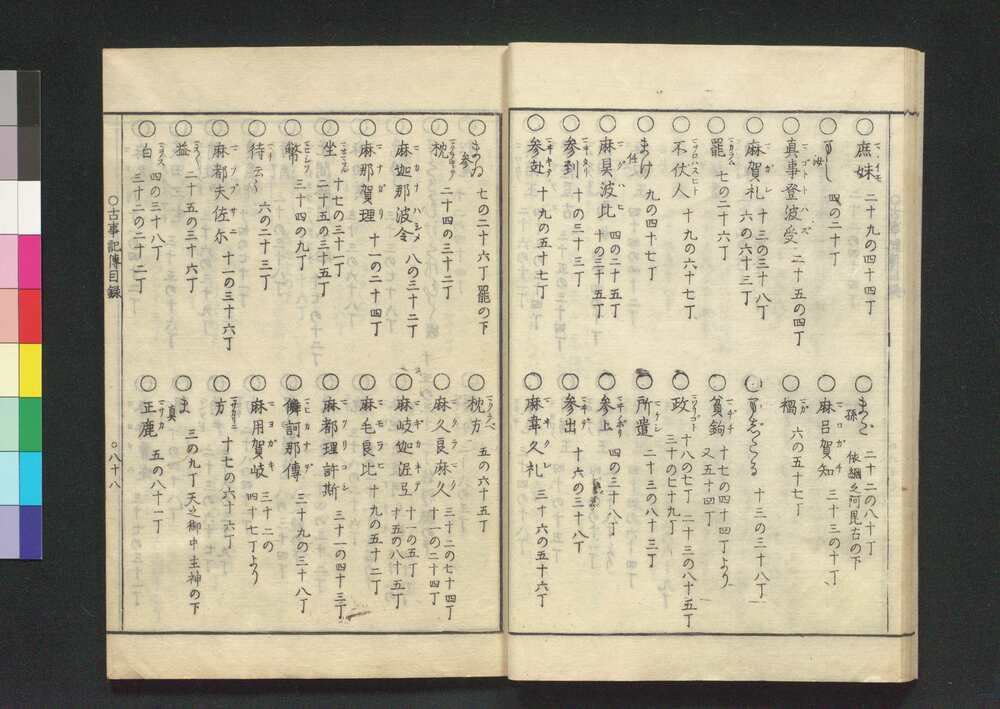 ○庶妹 二十九の四十四丁
○ましし 汝 四の二十丁
○真事登波受 二十五の四丁
○麻賀礼 十三の三十八丁 六の六十三丁
○罷 七の二十六丁
○不仕人 十九の六十七丁
○まけ 任 九の四十七丁
○麻具波比 四の二十五丁 十の三十五丁
○参到 十の三十三丁
○参赴 十九の五十七丁
二十二の八十丁 依網之阿毘古の下
○麻呂賀知 三十三の十丁
六の五十七丁
十三の三十八丁
○貧鉤 十七の四十四丁より 又五十四丁
○政 十八の七丁 二十三の八十五丁 三十の七十九丁
○所遣 二十三の八十三丁
○参上 四の三十八丁
○参出 十六の三十八丁
○麻韋久礼 三十六の五十六丁
○まゐ 参 七の二十六丁 罷の下
○枕 二十四の三十二丁
○麻迦那波令 八の三十二丁
○麻那賀理 十一の二十四丁
○坐 十七の三十一丁 二十五の三十五丁
○幣 三十四の九丁
○待云々 六の二十三丁
○麻都夫佐尓 十一の三十六丁
○益 二十五の三十六丁
○白 四の三十八丁 三十二の二十二丁
○枕方 五の六十五丁
○麻久良麻久 三十二の七十四丁 十一の二十四丁
○麻岐迦泥弖 十一の五丁 十五の八十五丁
○麻毛良比 十九の五十二丁
○麻都理許斯 三十一の四十三丁
三十九の三十八丁
○麻用賀岐 三十二の四十七丁より
○方 十七の六十六丁
○ま 真 三の九丁 天之御中主神の下
○正鹿 五の八十一丁
○古事記傳目録
○八十八